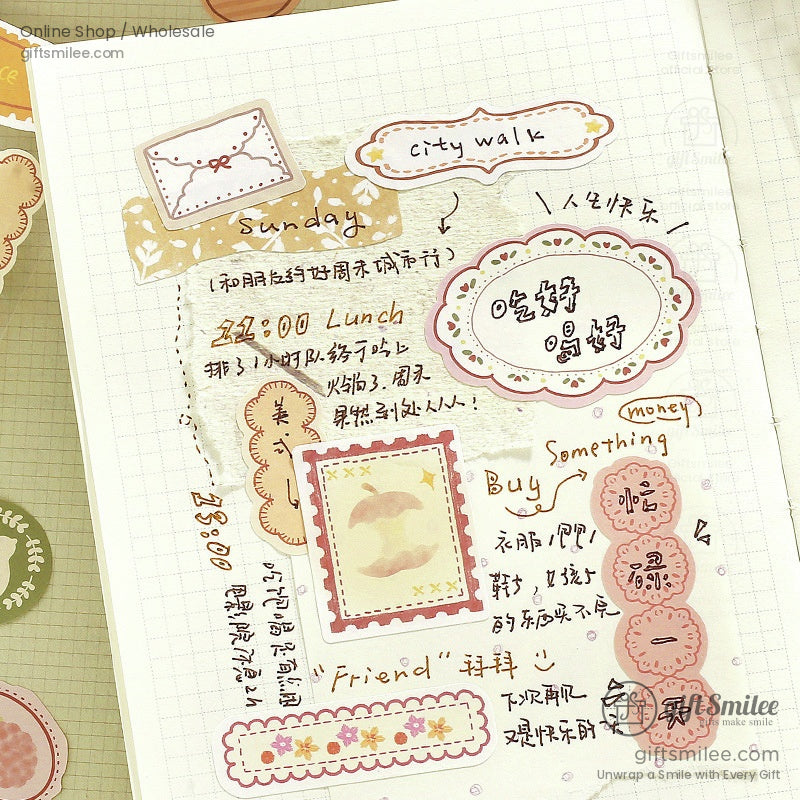 Online Shop / Wholesale
giftsmilee.com
Giftsmilee
official store
city walk
sunday
人生快乐
(和朋友约好周末城市行)
吃好
喝好
11:00 Lunch
排了1小时队终于吃上
火锅了.周末
果然到处人人人!
美
式
money
Something
Buy
衣服
的东西买不完
忙
碌
一
周
18:00
"Friend" 拜拜
下次再见
又是快乐的一天
Gift Smilee
gifts make smile
giftsmilee.com
Unwrap a Smile with Every Gift